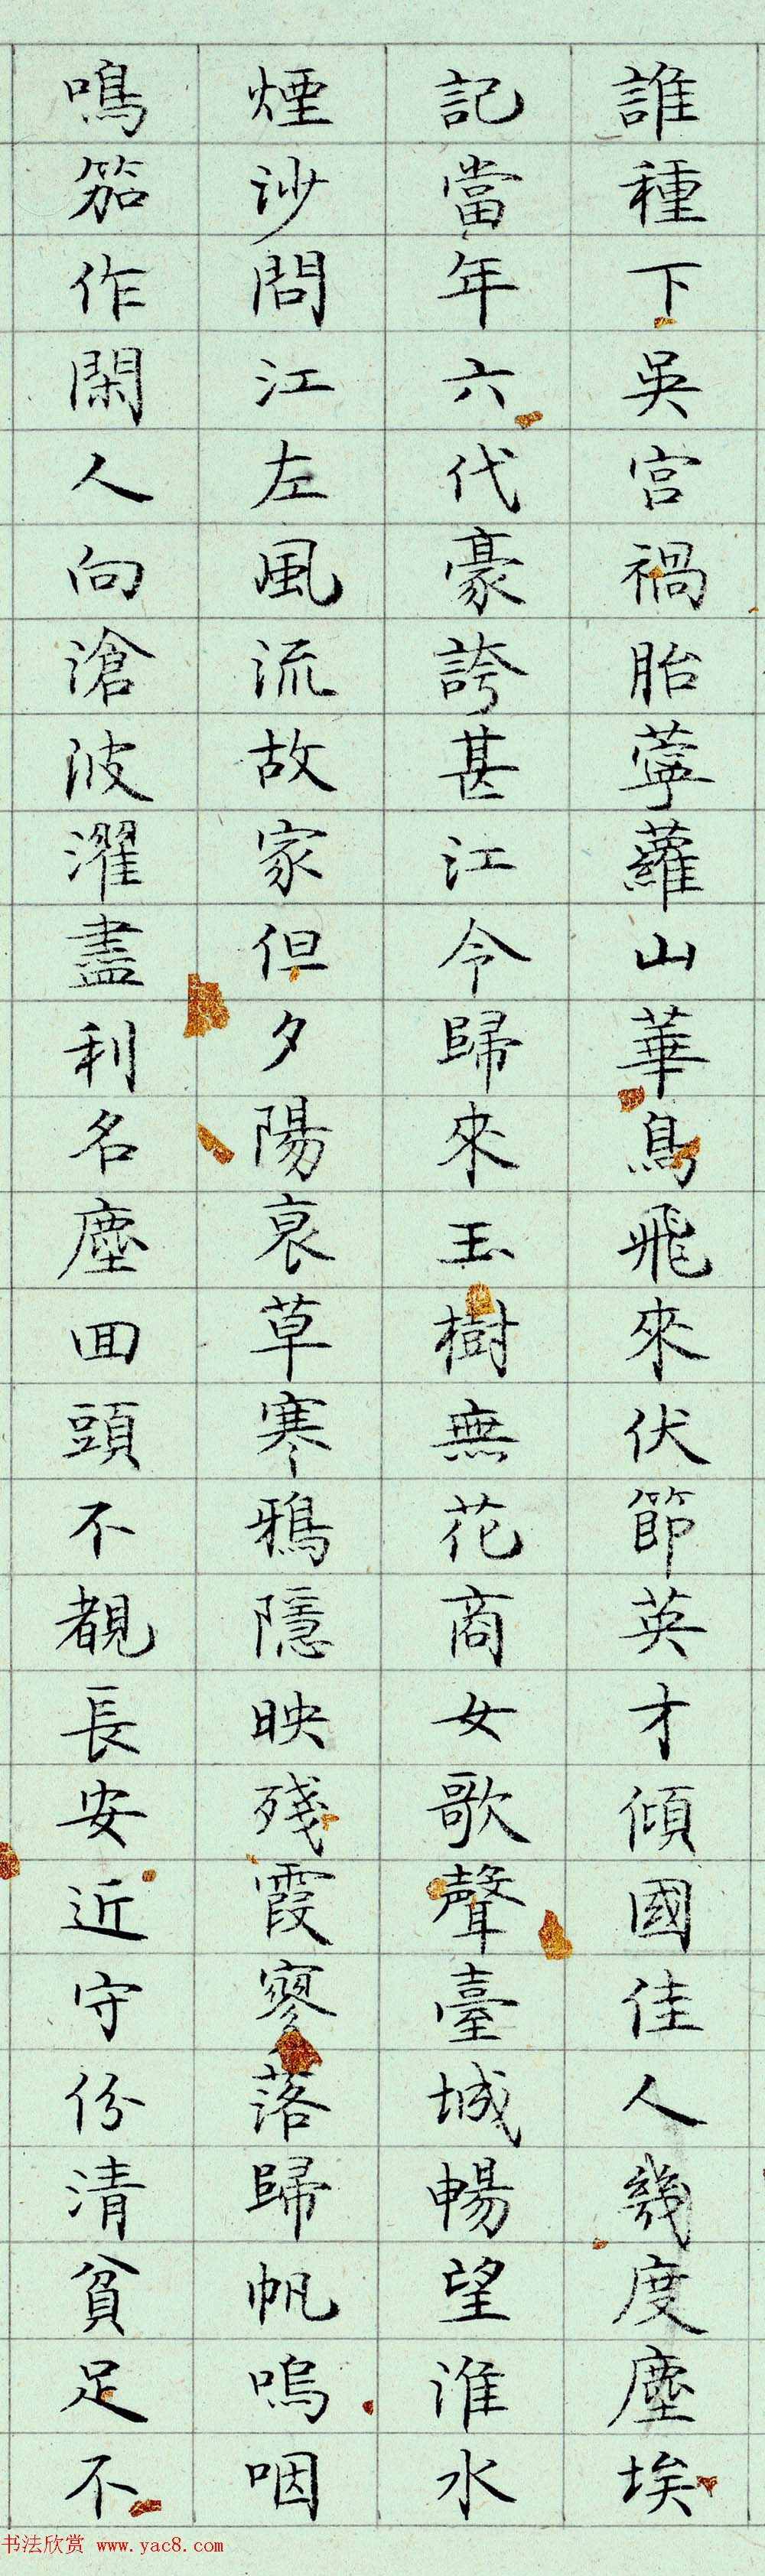 誰種下吳宮禍胎薴蘿山華鳥飛來伏節英才傾國佳人幾度塵埃
記當年六代豪誇甚江令歸來玉樹無花商女歌聲臺城暢望淮水
煙沙問江左風流故家但夕陽衰草寒鴉隱映殘霞寥落歸帆嗚咽
鳴笳作閑人向滄波濯盡利名塵回頭不覩長安近守份清貧足不
书法欣赏 www.yac8.com